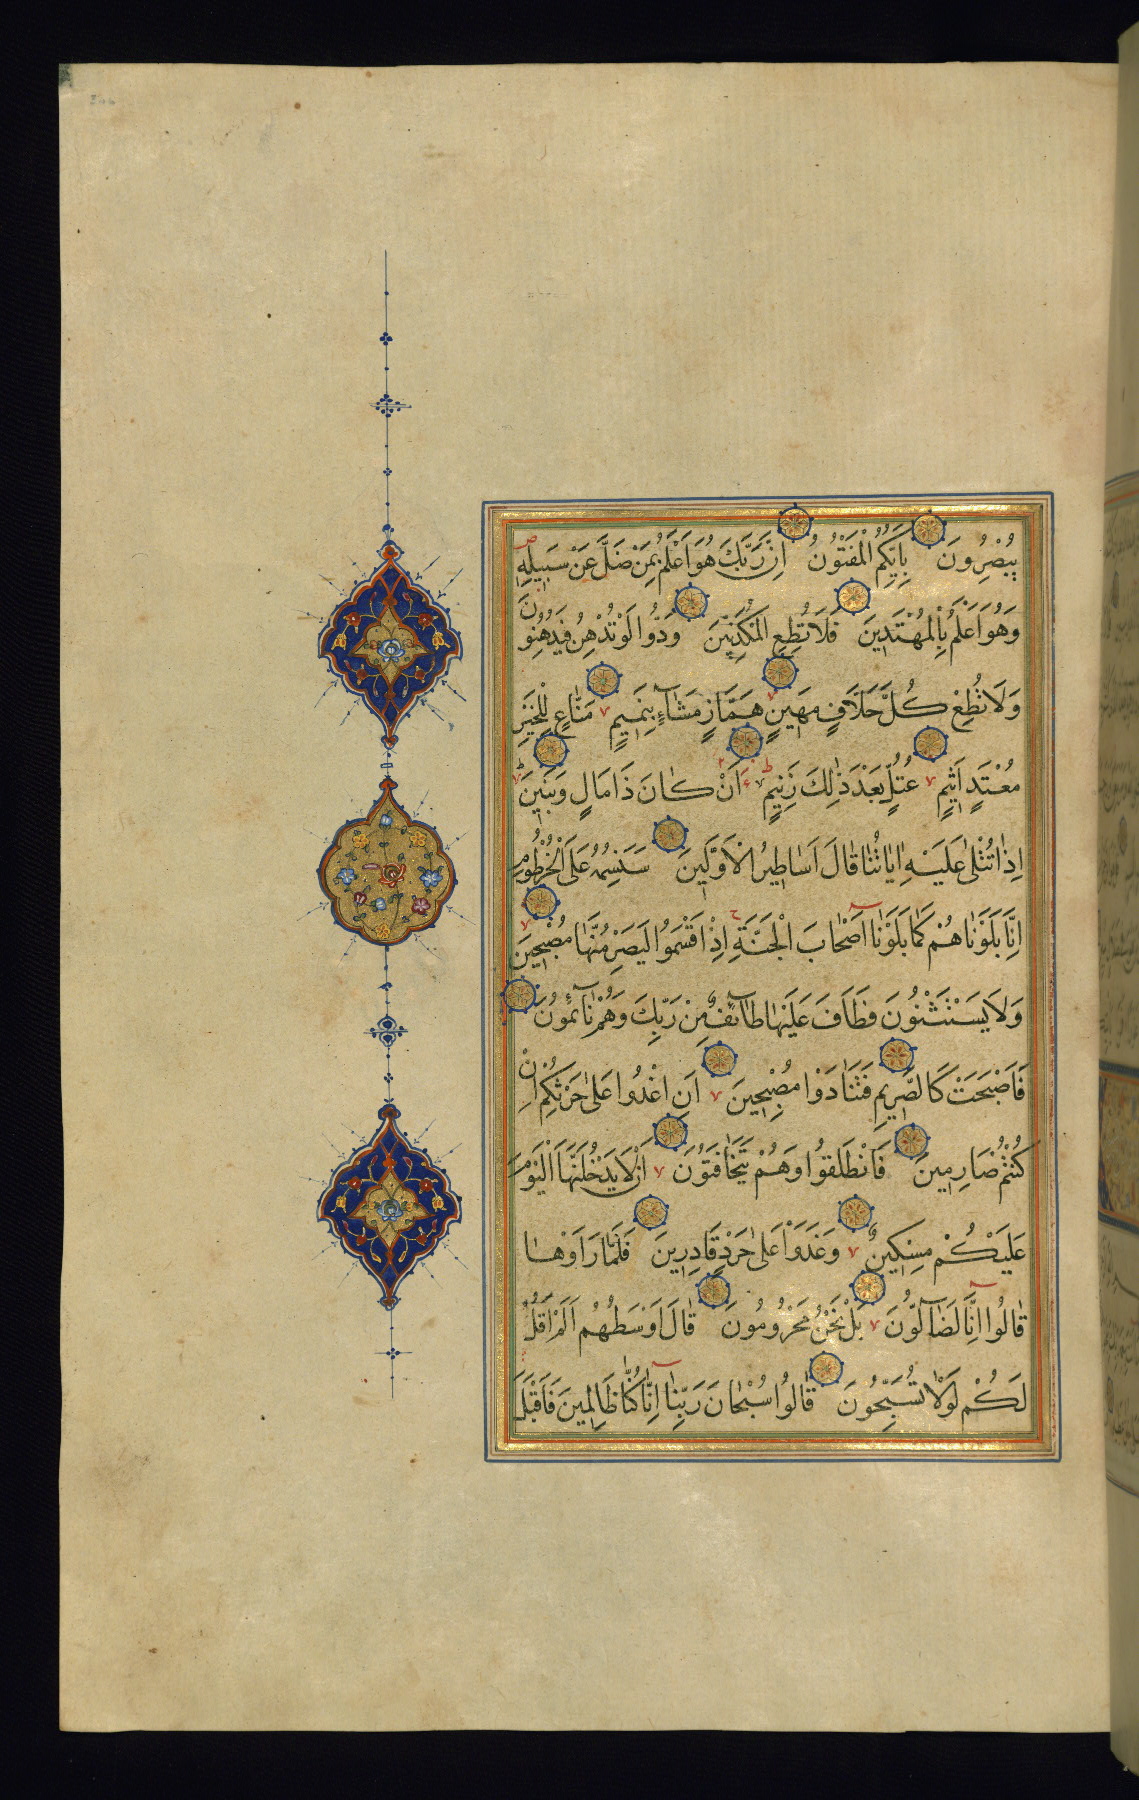 يُبْصِرُونَ بِاَيِّكُمُ الْمَفْتُونُ اِنَّ رَبَّكَ هُوَ اَعْلَمُ بِمَنْ ضَلَّ عَنْ سَبِيلِهِ
وَهُوَ اَعْلَمُ بِالْمُهْتَدِينَ فَلَا تُطِعِ الْمُكَذِّبِينَ وَدُّوا لَوْ تُدْهِنُ فَيُدْهِنُونَ
وَلَا تُطِعْ كُلَّ حَلَّافٍ مَهِينٍ هَمَّازٍ مَشَّاءٍ بِنَمِيمٍ مَنَّاعٍ لِلْخَيْرِ
مُعْتَدٍ اَثِيمٍ عُتُلٍّ بَعْدَ ذٰلِكَ زَنِيمٍ اَنْ كَانَ ذَا مَالٍ وَبَنِينَ
اِذَا تُتْلٰى عَلَيْهِ اٰيَاتُنَا قَالَ اَسَاطِيرُ الْاَوَّلِينَ سَنَسِمُهُ عَلَى الْخُرْطُومِ
اِنَّا بَلَوْنَاهُمْ كَمَا بَلَوْنَا اَصْحَابَ الْجَنَّةِ اِذْ اَقْسَمُوا لَيَصْرِمُنَّهَا مُصْبِحِينَ
وَلَا يَسْتَثْنُونَ فَطَافَ عَلَيْهَا طَآئِفٌ مِنْ رَبِّكَ وَهُمْ نَآئِمُونَ
فَاَصْبَحَتْ كَالصَّرِيمِ فَتَنَادَوْا مُصْبِحِينَ اَنِ اغْدُوا عَلٰى حَرْثِكُمْ اِنْ
كُنْتُمْ صَارِمِينَ فَانْطَلَقُوا وَهُمْ يَتَخَافَتُونَ اَنْ لَا يَدْخُلَنَّهَا الْيَوْمَ
عَلَيْكُمْ مِسْكِينٌ وَغَدَوْا عَلٰى حَرْدٍ قَادِرِينَ فَلَمَّا رَاَوْهَا
قَالُوا اِنَّا لَضَآلُّونَ بَلْ نَحْنُ مَحْرُومُونَ قَالَ اَوْسَطُهُمْ اَلَمْ اَقُلْ
لَكُمْ لَوْلَا تُسَبِّحُونَ قَالُوا سُبْحَانَ رَبِّنَا اِنَّا كُنَّا ظَالِمِينَ فَاَقْبَلَ